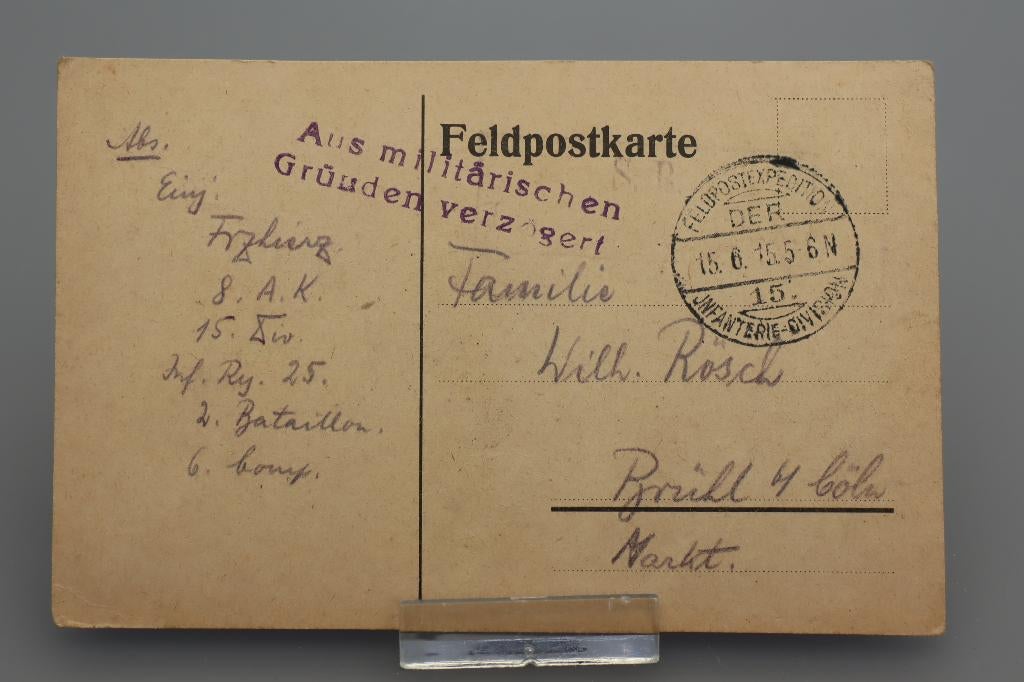 Abs.
Einj.
8. A. K.
15. Div.
Inf. Rg. 25.
2. Bataillon.
6. Comp.
Aus militärischen
Gründen verzögert
Feldpostkarte
S. B.
FELDPOSTEXPEDITION
DER
15. 6. 15. 5-6 N
15.
INFANTERIE-DIVISION
Familie
Wilh. Rösch
Brühl b/ Cöln
Markt.